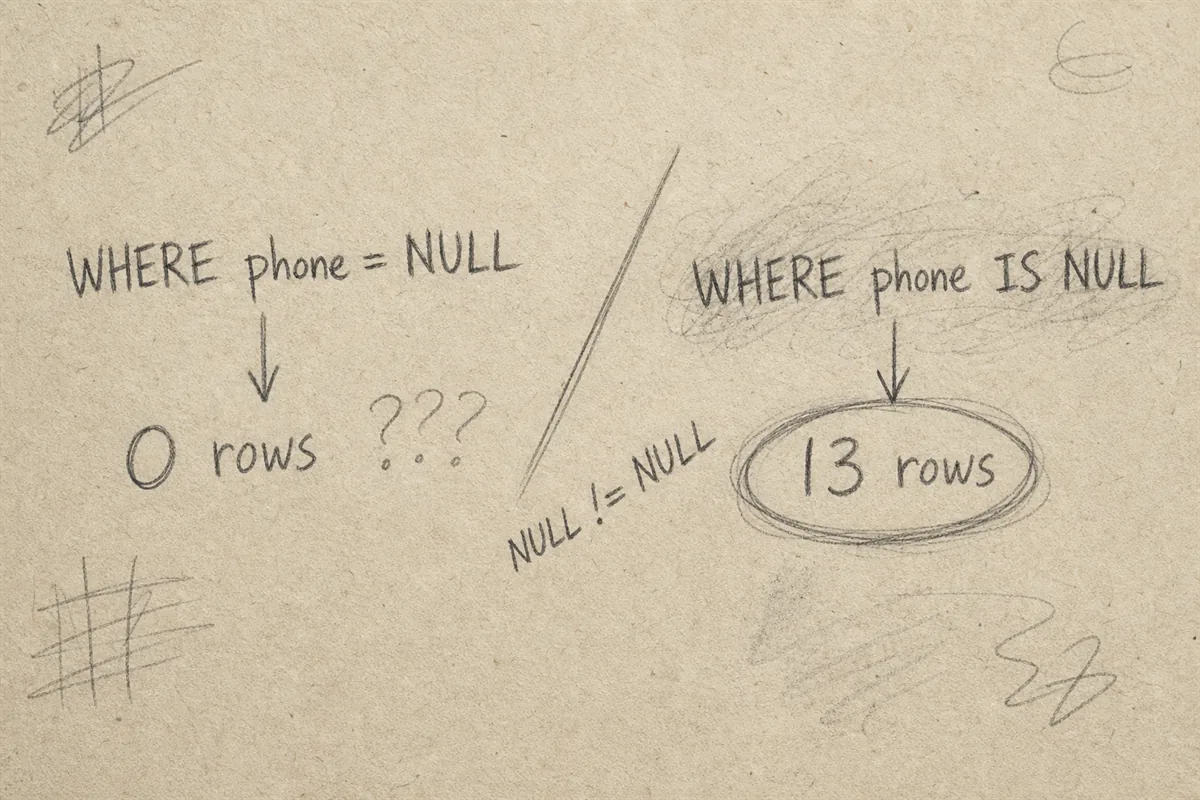 WHERE phone = NULL
0 rows ???
NULL != NULL
WHERE phone IS NULL
13 rows